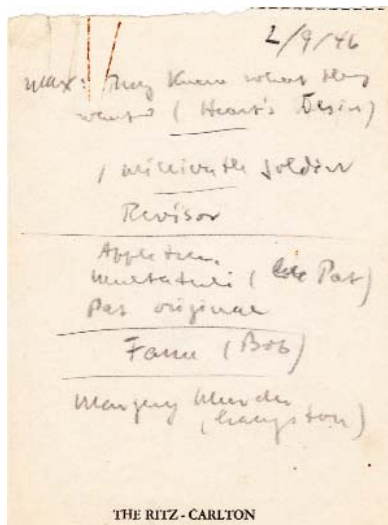 2/9/46
Max: They Knew what they
want (Heart's Desire)
1 millionth soldier
Revisor
Appletree,
Multatuli ( Pat)
Pat original
Fame (Bob)
Margery Murder
(Langston)
THE RITZ - CARLTON